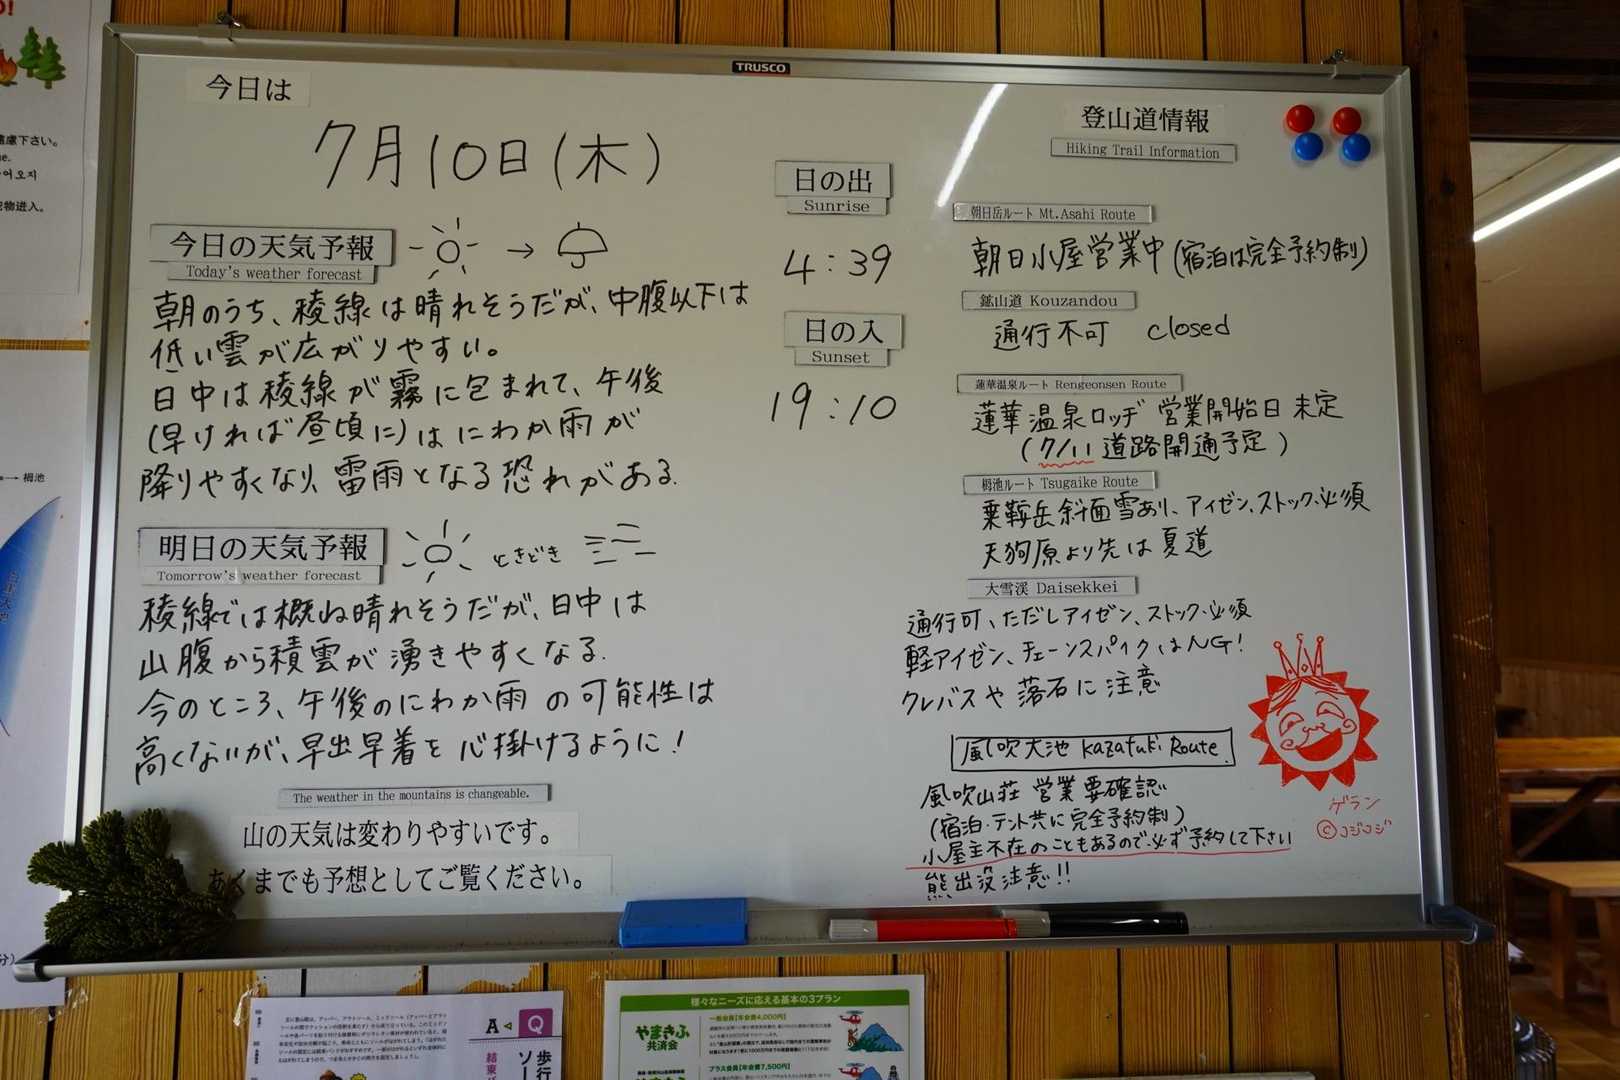 TRUSCO
今日は
7月10日(木)
今日の天気予報
Today's weather forecast
朝のうち、稜線は晴れそうだが、中腹以下は
低い雲が広がりやすい。
日中は稜線が霧に包まれて、午後
(早ければ昼頃に)はにわか雨が
降りやすくなり、雷雨となる恐れがある.
明日の天気予報
Tomorrow's weather forecast
ときどき
稜線では概ね晴れそうだが、日中は
山腹から積雲が湧きやすくなる.
今のところ、午後のにわか雨の可能性は
高くないが、早出早着を心掛けるように!
The weather in the mountains is changeable.
山の天気は変わりやすいです。
あくまでも予想としてご覧ください。
日の出
Sunrise
4:39
日の入
Sunset
19:10
登山道情報
Hiking Trail Information
朝日岳ルート Mt.Asahi Route
朝日小屋営業中(宿泊は完全予約制)
鉱山道 Kouzandou
通行不可 closed
蓮華温泉ルート Rengeonsen Route
蓮華温泉ロッヂ 営業開始日 未定
(7/11 道路開通予定)
栂池ルート Tsugaike Route
乗鞍岳斜面雪あり、アイゼン、ストック、必須
天狗原より先は夏道
大雪渓 Daisekkei
通行可、ただしアイゼン、ストック、必須
軽アイゼン、チェーンスパイクはNG!
クレバスや落石に注意
風吹大池 Kazafuki Route
風吹山荘 営業要確認
(宿泊・テント共に完全予約制)
小屋主不在のこともあるので必ず予約して下さい
熊出没注意!!
ゲラン
©コジコジ
遠慮下さい。
어오지
物进入。
→ 栂池
A Q
様々なニーズに応える基本の3プラン
やまきふ
共済会
一般会員【年会費4,000円】
プラス会員【年会費7,500円】